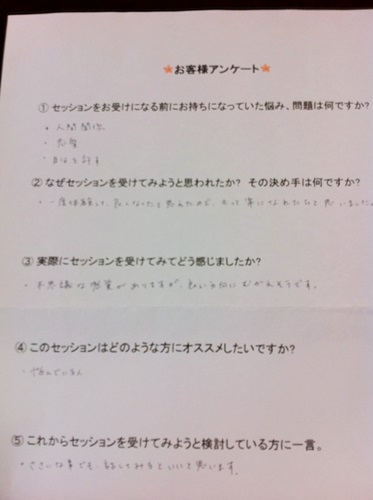 ★お客様アンケート★
① セッションをお受けになる前にお持ちになっていた悩み、問題は何ですか?
・人間関係
・恋愛
・自分を許す
② なぜセッションを受けてみようと思われたか? その決め手は何ですか?
・一度体験して、良くなったと思えたので、もっと楽になれたらと思いました。
③ 実際にセッションを受けてみてどう感じましたか?
・不思議な感覚がありますが、良い方向にむかえそうです。
④ このセッションはどのような方にオススメしたいですか?
・悩んでいる人
⑤ これからセッションを受けてみようと検討している方に一言。
・ささいな事でも、話してみるといいと思います。